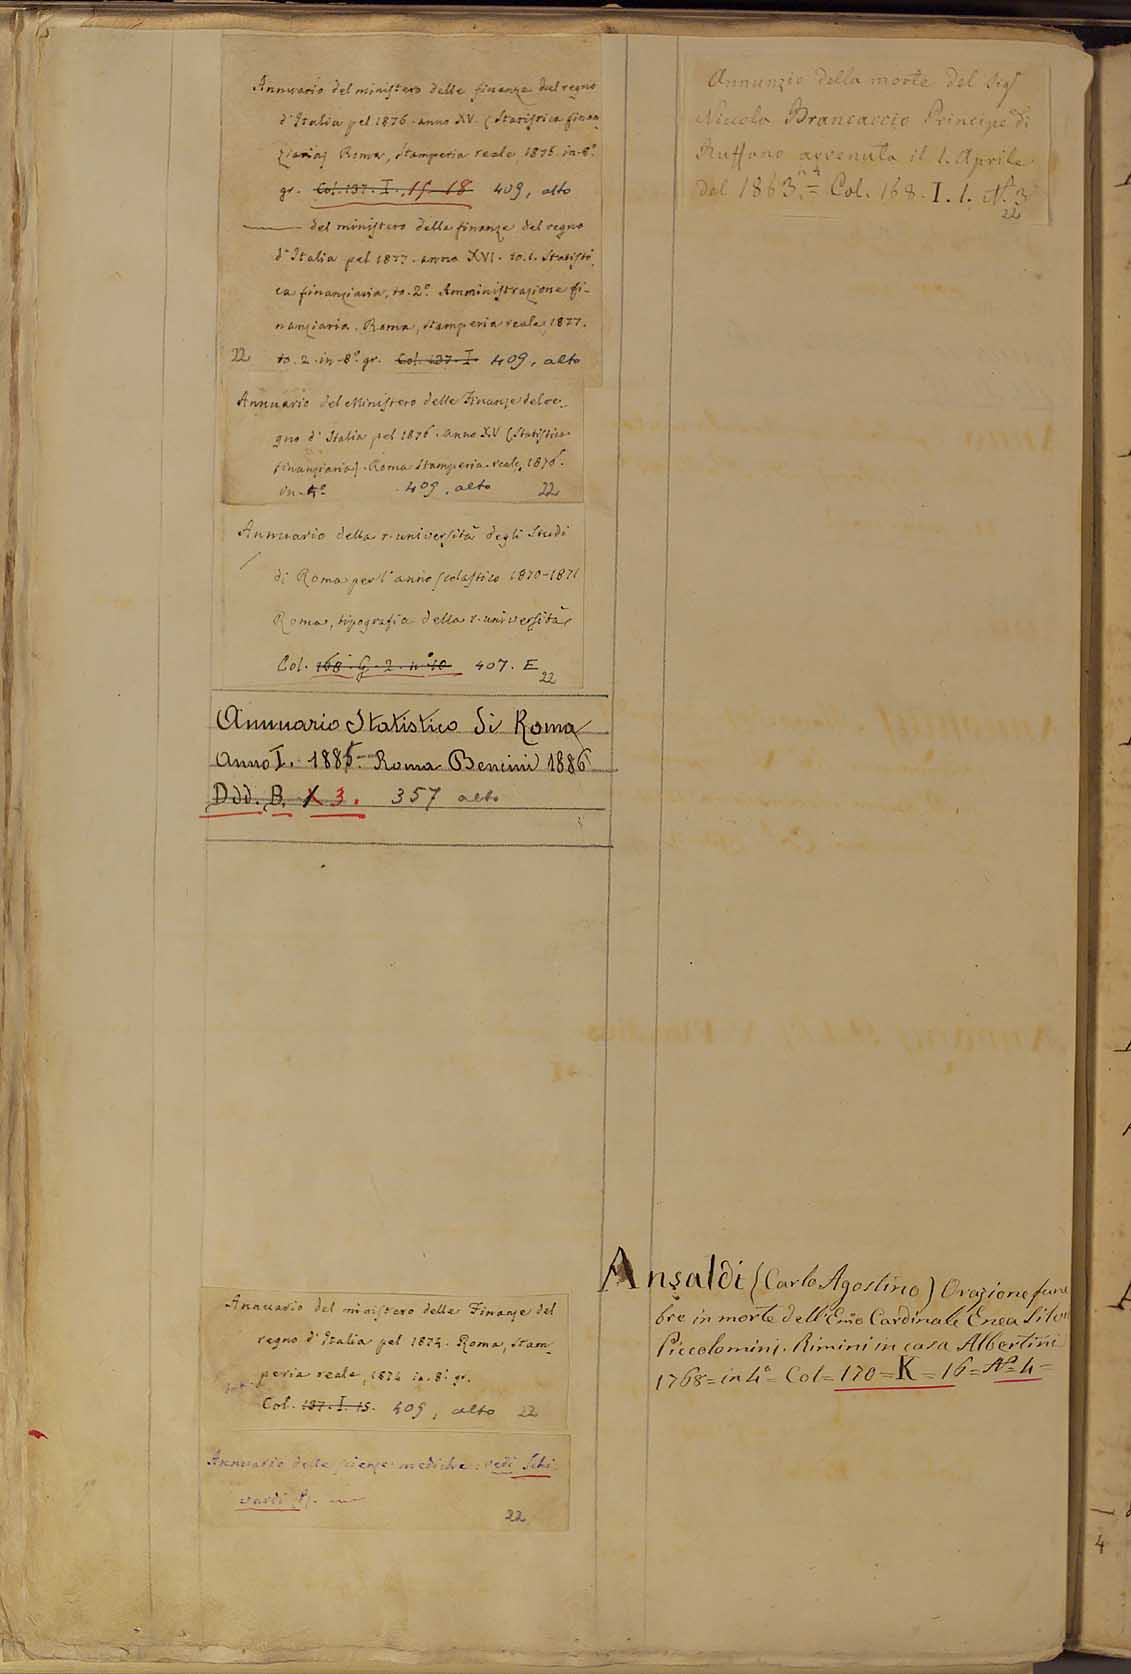 Annuario del ministero delle finanze del regno
d'Italia pel 1876. anno XV. (Statistica finan
ziaria) Roma, stamperia reale, 1875. in-8.º
gr. Col. 137. I. 15-18 409, alto
—— del ministero delle finanze del regno
d'Italia pel 1877. anno XVI. to.1. Statisti
ca finanziaria, to. 2.º Amministrazione fi-
nanziaria. Roma, stamperia reale, 1877.
22 to. 2. in-8.º gr. Col. 137. I. 409, alto
Annuario del Ministero delle Finanze del re-
gno d'Italia pel 1876. anno XV (Statistica
finanziaria). Roma Stamperia reale, 1876.
in-4º 409, alto 22
Annuario della r. università degli Studi
di Roma per l'anno scolastico 1870-1871
Roma, tipografia della r. università
Col. 168. G. 2. nº 10 407. E
22
Annuario Statistico di Roma
Anno I. 1885. Roma Bencini 1886
Ddd. B. X 3. 357 alto
Annuario del ministero delle Finanze del
regno d'Italia pel 1874. Roma, stam-
peria reale, 1874 in-8.º gr.
Col. 137. I. 15. 409, alto 22
Annuario delle scienze mediche. vedi Schi-
vardi P.
22
Annunzio della morte del Sigr
Niccola Brancaccio Principe di
Ruffano avvenuta il 1. Aprile
del 1863. = Col. 168. I. 1. Nº. 3
22
Ansaldi (Carlo Agostino) Orazione fune
bre in morte dell'Emo Cardinale Enea Silvio
Piccolomini. Rimini in casa Albertini
1768 = in 4º = Col = 170 = K = 16 = Nº = 4 =
4